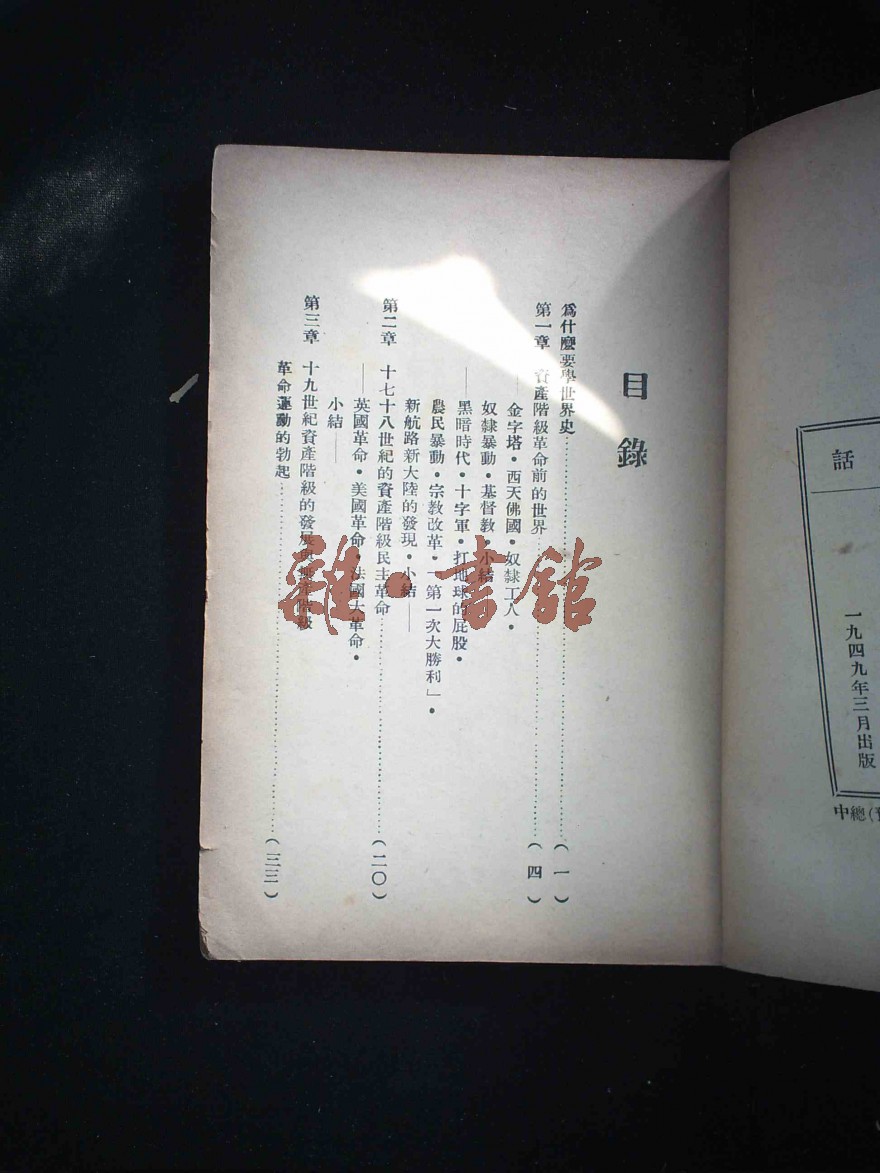 目錄
爲什麼要學世界史……(一)
第一章 資產階級革命前的世界……(四)
——金字塔·西天佛國·奴隸工人·
奴隸暴動·基督教·小結——
——黑暗時代·十字軍·打地球的屁股·
農民暴動·宗教改革·「第一次大勝利」·
新航路新大陸的發現·小結——
第二章 十七十八世紀的資產階級民主革命……(二〇)
——英國革命·美國革命·法國大革命·
小結——
第三章 十九世紀資產階級的發展與無產階級
革命運動的勃起……(三三)
雜·書館
話
一九四九年三月出版
中總(